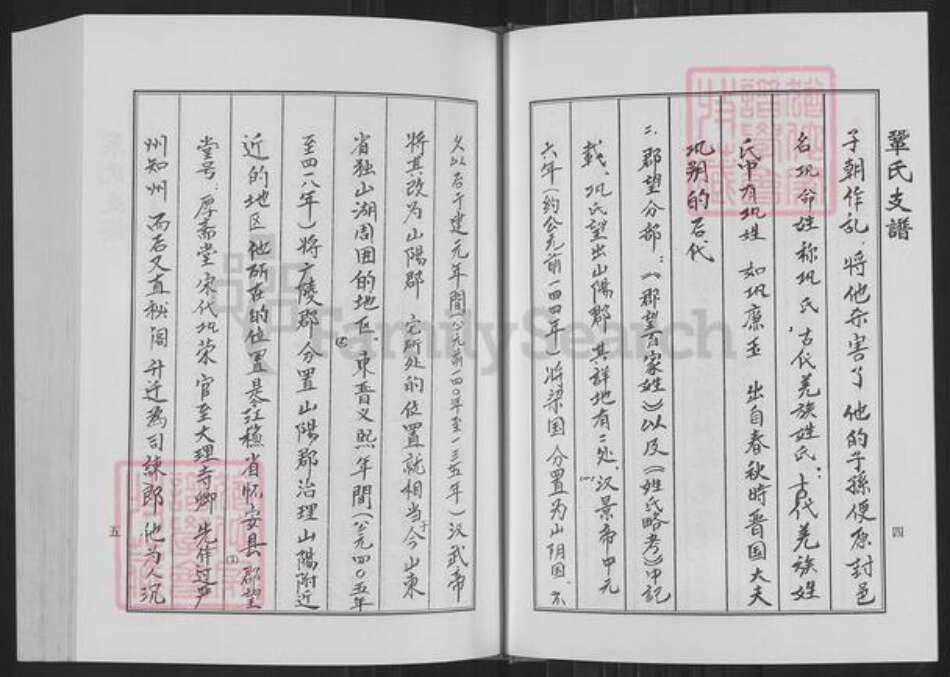 鞏氏支譜
子朝作乱，将他杀害了，他的子孫便原封邑
名巩命姓称巩氏，古代羌族姓氏：古代羌族姓
氏中有巩姓 如巩廉玉 出自春秋時晋国大夫
巩朔的后代
二、郡望分部：《郡望百家姓》以及《姓氏略考》中記
載、巩氏望出山陽郡 其詳地有二处、(一)汉景帝中元
六年(約公元前一四四年)将梁国分置为山阴国、不
久以后于建元年間(公元前一四〇年至一三五年)汉武帝
将其改为山陽郡 它所处的位置就相当于今山東
省独山湖周囲的地区 (2)東晋义熙年間(公元四〇五年
至四一八年)将广陵郡分置山陽郡治理山陽附近
近的地区他所在的位置是今江 省怀安县 郡望
堂号：厚斋堂宋代巩荣 官至大理寺卿 先作过严
州知州 而后又直秘阁 升迁為司諫郎 他为人沉
四
五
FamilySearch